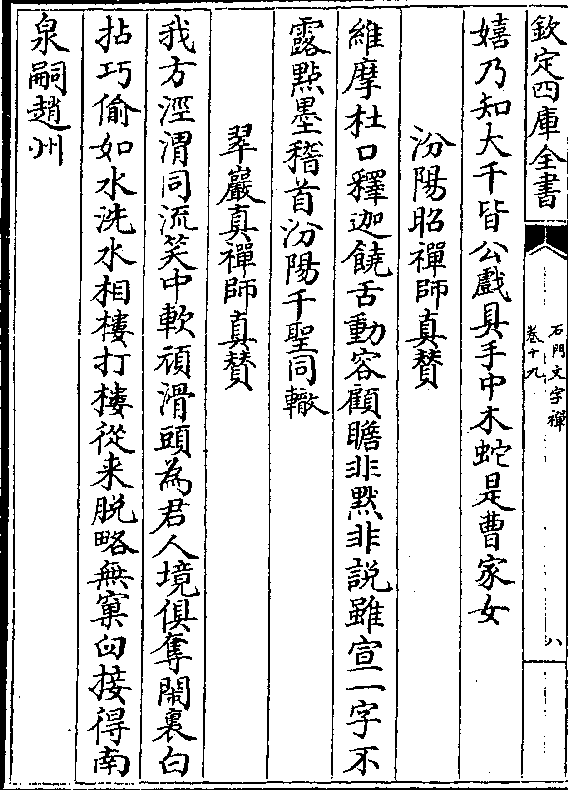 欽定四庫全書
石門文字禪
卷十九
八
嬉乃知大千皆公戲具手中木蛇是曹家女
汾陽昭禪師真賛
維摩杜口釋迦饒舌動容顧瞻非黙非説雖宣一字不
露㸃墨稽首汾陽千聖同轍
翠巖真禪師真賛
我方涇渭同流笑中軟頑滑頭為君人境俱奪鬧裏白
拈巧偷如水洗水相樓打樓從来脱略無窠臼接得南
泉嗣趙州